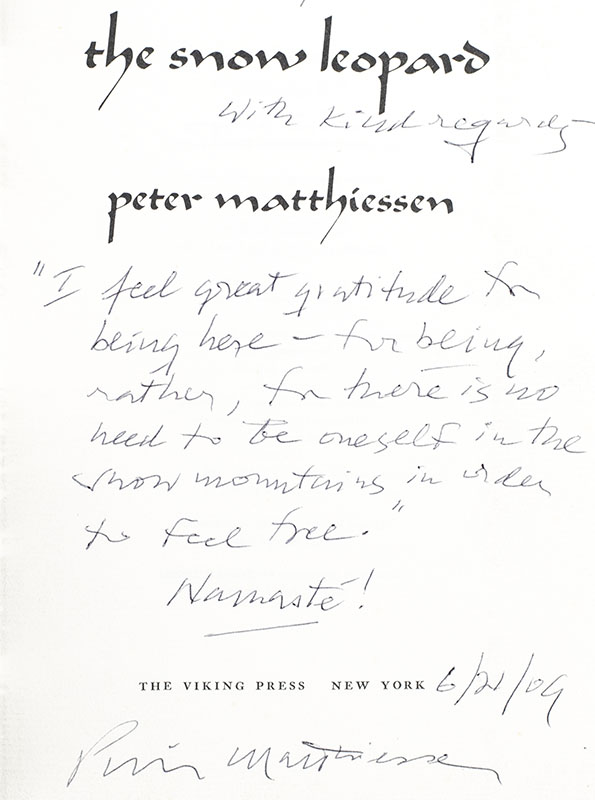 the snow leopard
With kind regards
peter matthiessen
"I feel great gratitude for
being here – for being,
rather, for there is no
need to be oneself in the
snow mountains in order
to feel free."
Namasté!
THE VIKING PRESS NEW YORK 6/21/09
Peter Matthiessen